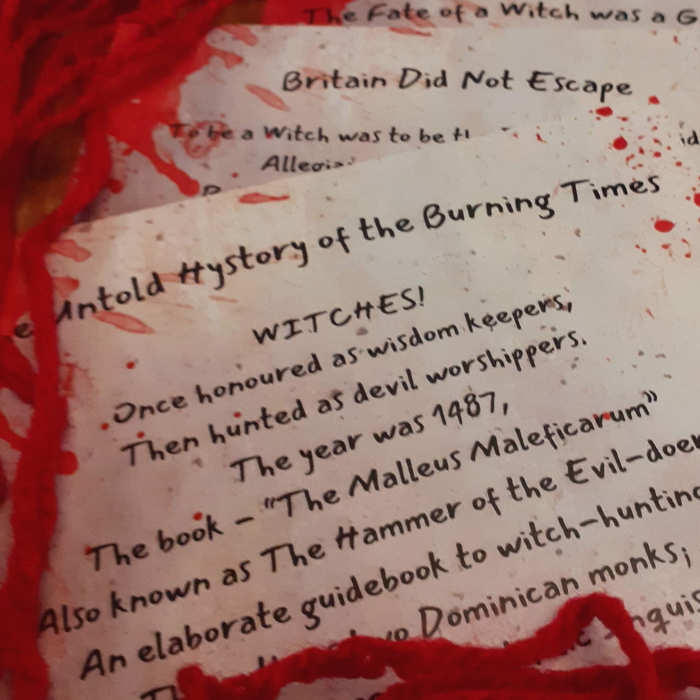 The Fate of a Witch was a G
Britain Did Not Escape
To be a Witch was to be
id
e Untold Hystory of the Burning Times
WITCHES!
Once honoured as wisdom keepers,
Then hunted as devil worshippers.
The year was 1487,
The book – "The Malleus Maleficarum"
Also known as The Hammer of the Evil-doer
An elaborate guidebook to witch-hunting
Dominican monks;